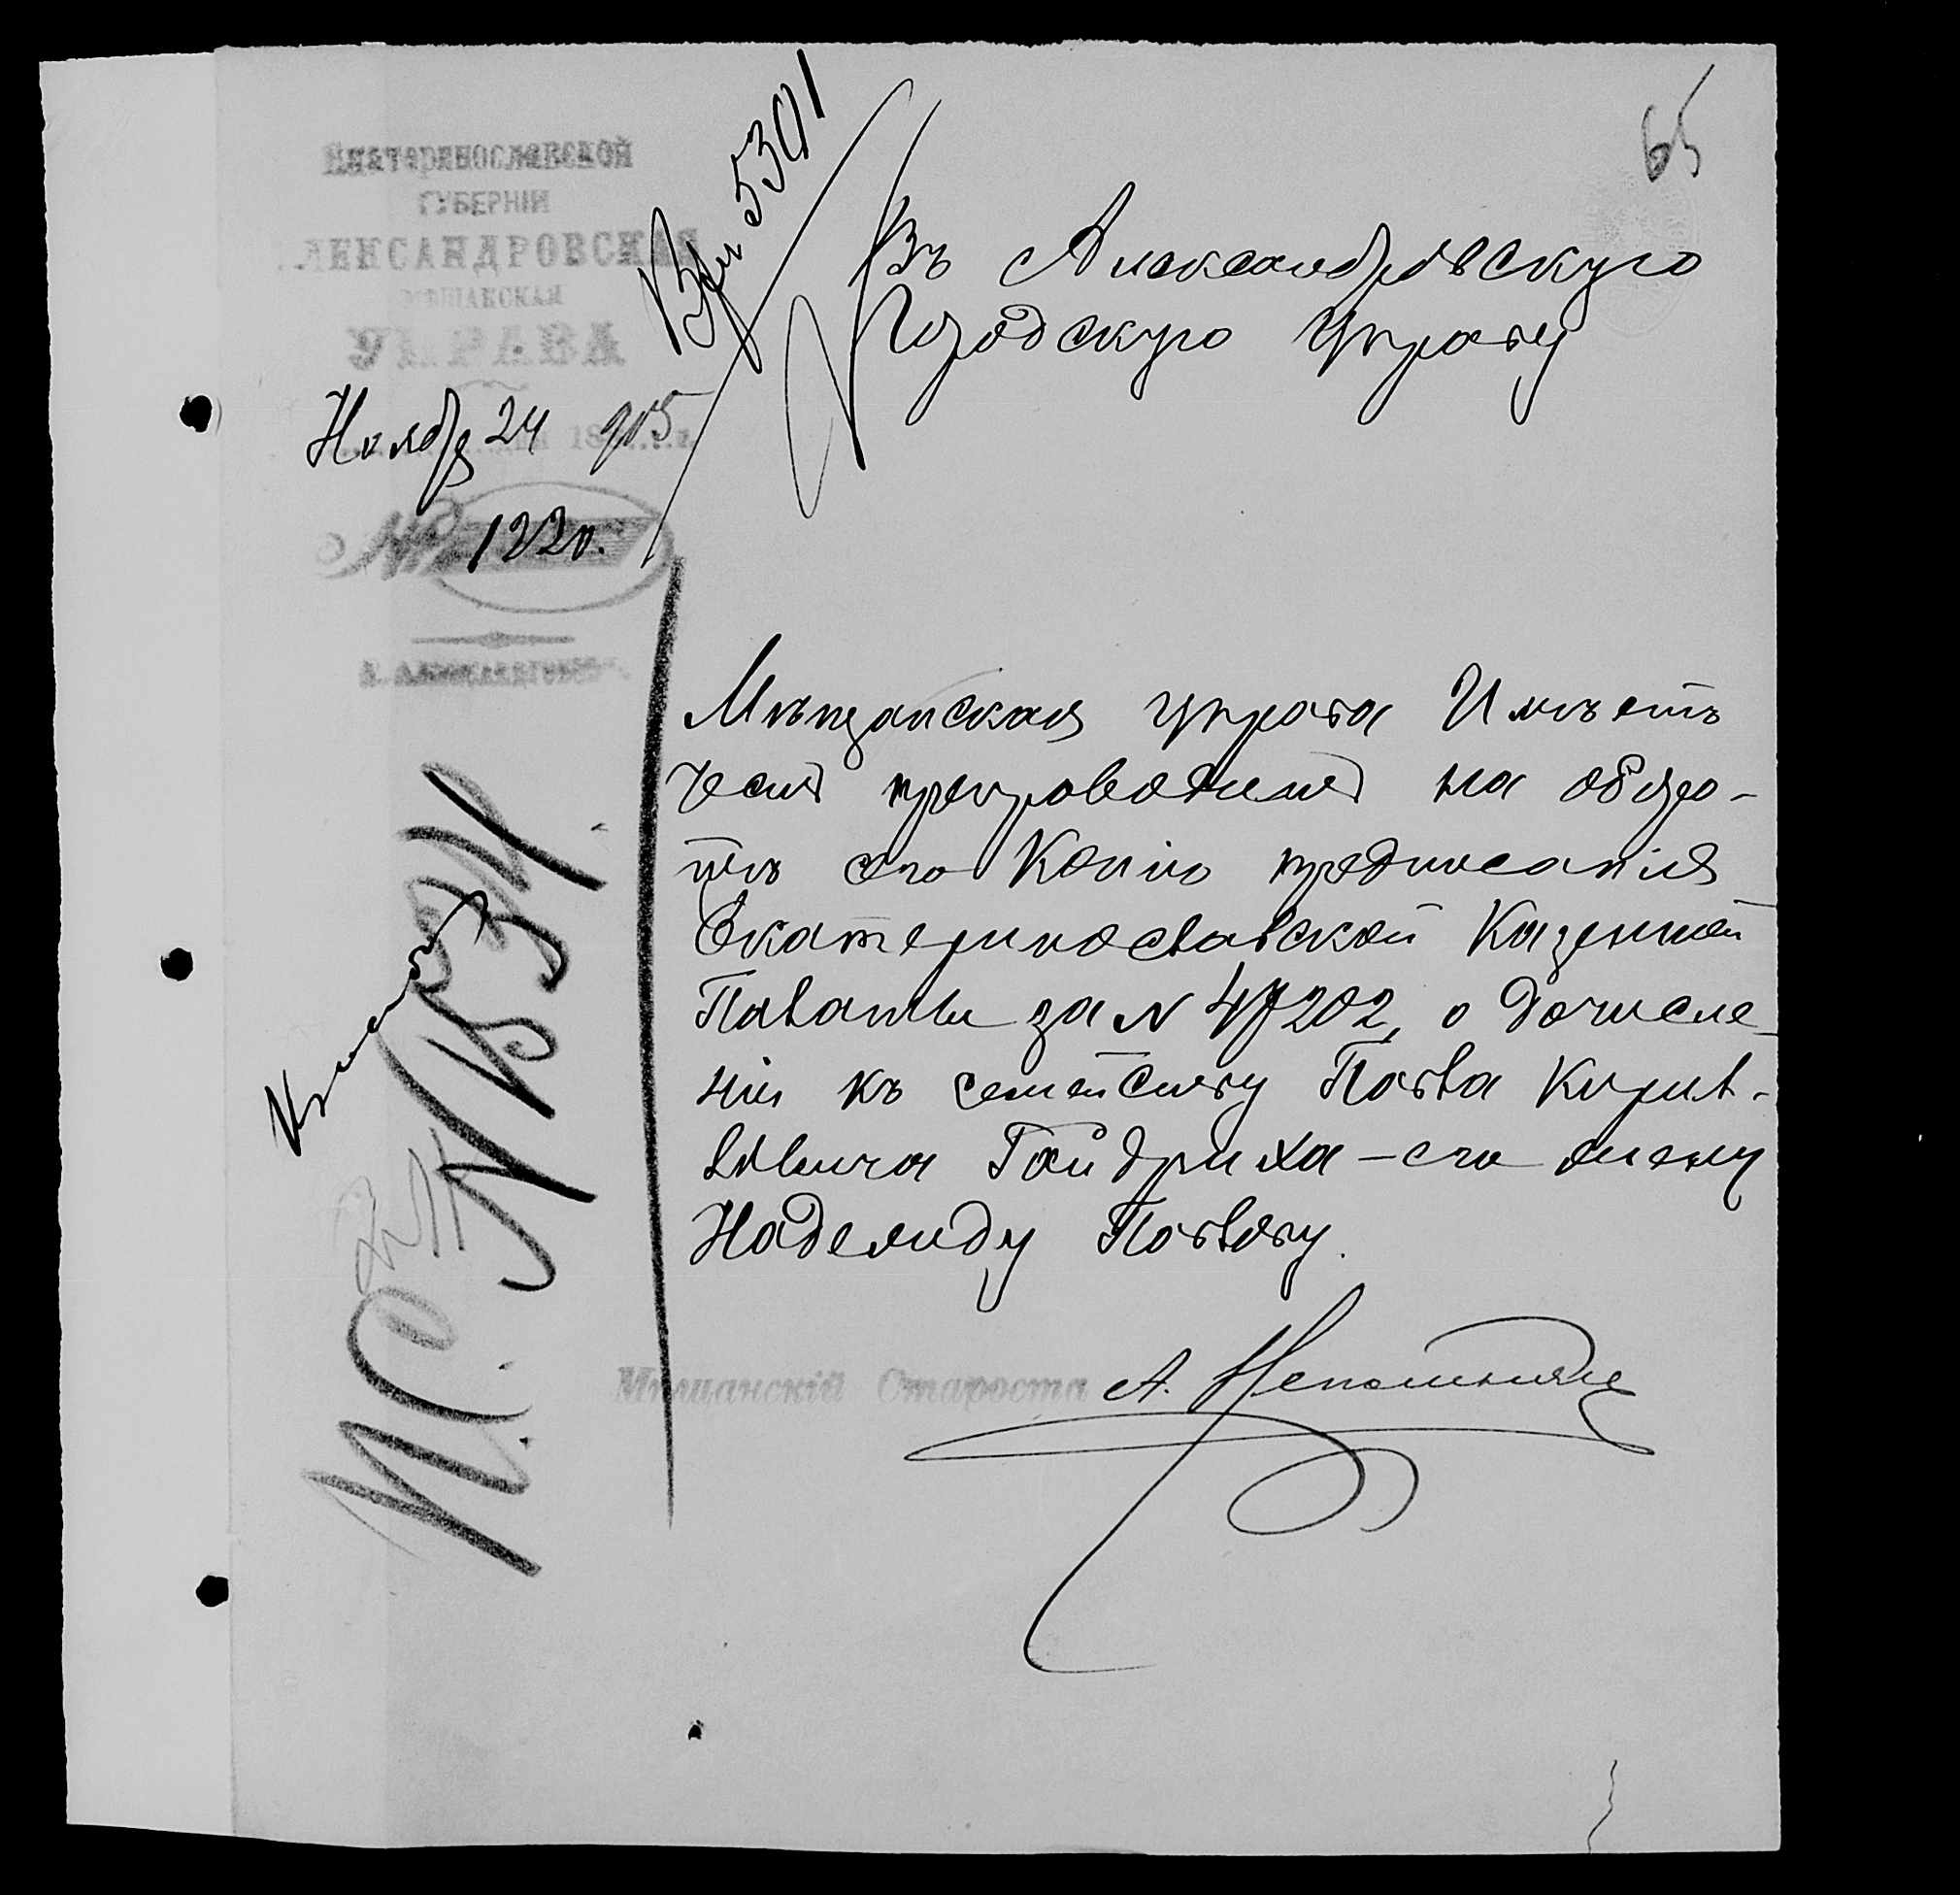 65
Екатеринославской
ГУБЕРНІИ
АЛЕКСАНДРОВСКАЯ
МѢЩАНСКАЯ
УПРАВА
Ноября 24 905
№ 1220.
г. Александровскъ
5301
Въ Александровскую
Городскую Управу
Мѣщанская управа Имѣетъ
честь препроводить на оборо-
тѣ сего Копію предписанія
Екатеринославской Казенной
Палаты за № 47202, о дочисле-
ніи къ семейству Павла Кирил-
ловича Гайдриха – его жену
Надежду Павлову.
Мѣщанскій Староста А.